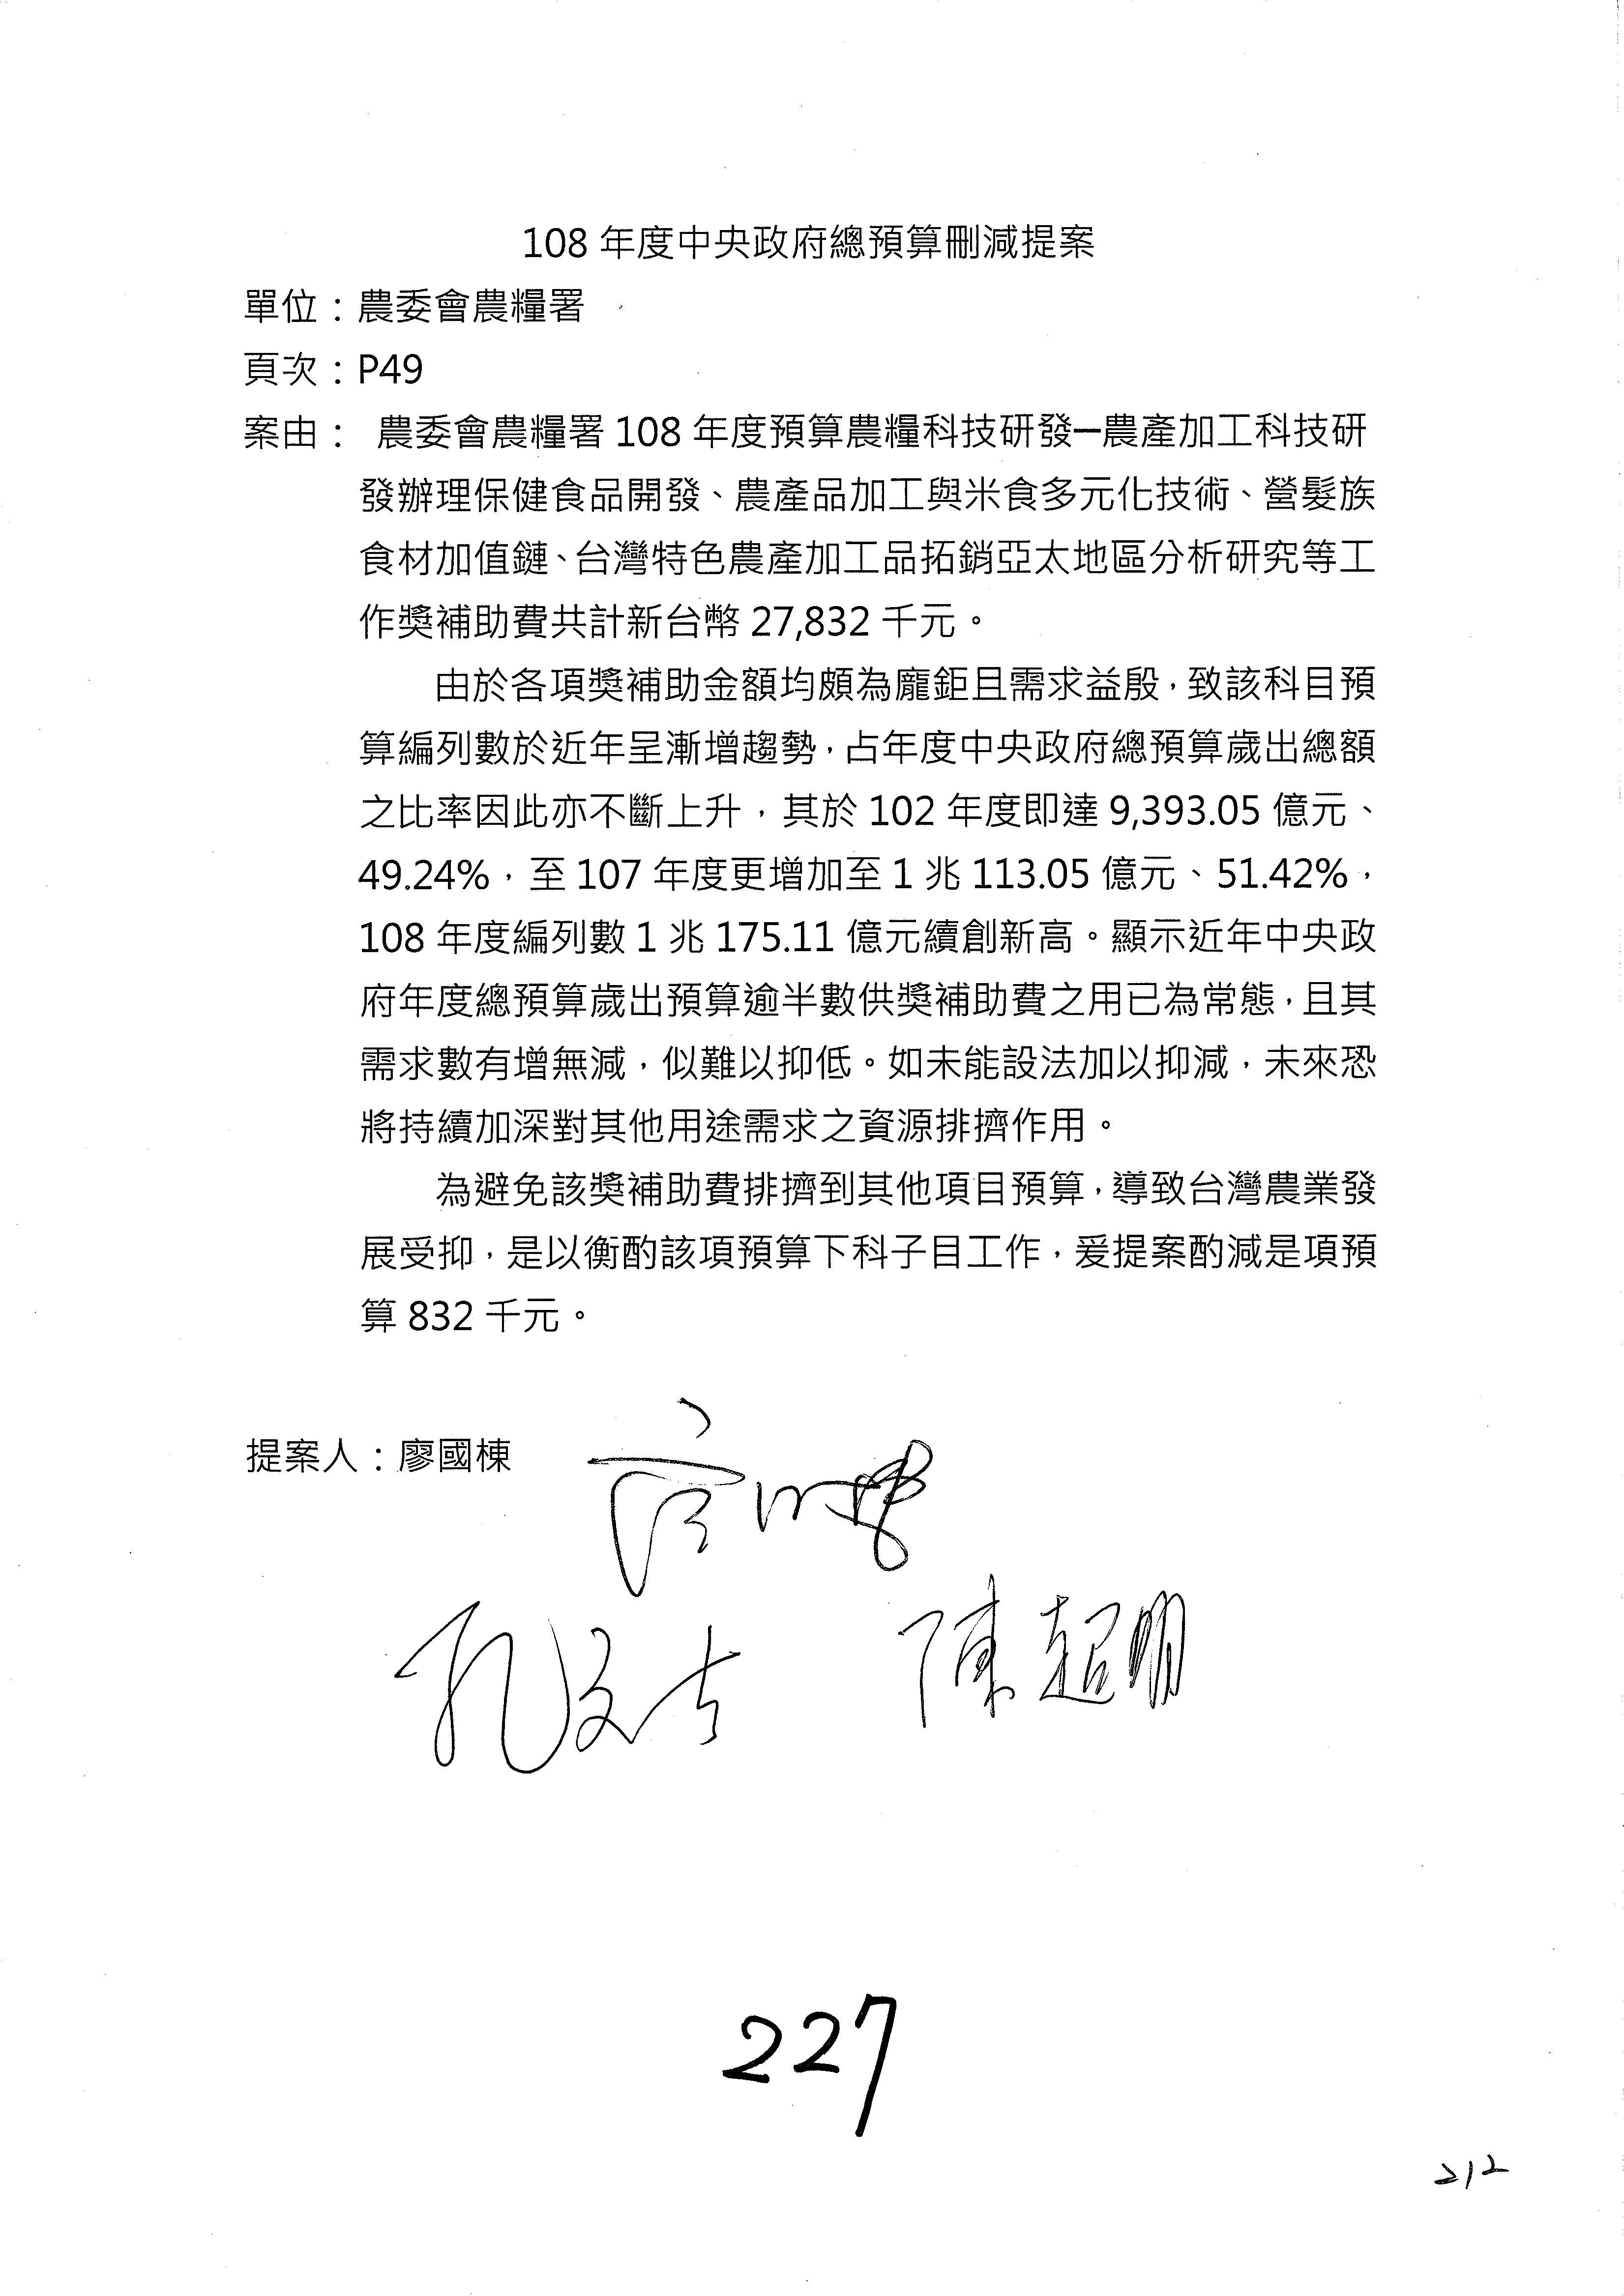 108 年度中央政府總預算刪減提案
單位：農委會農糧署
頁次：P49
案由： 農委會農糧署 108 年度預算農糧科技研發─農產加工科技研
發辦理保健食品開發、農產品加工與米食多元化技術、營髮族
食材加值鏈、台灣特色農產加工品拓銷亞太地區分析研究等工
作獎補助費共計新台幣 27,832 千元。
由於各項獎補助金額均頗為龐鉅且需求益殷，致該科目預
算編列數於近年呈漸增趨勢，占年度中央政府總預算歲出總額
之比率因此亦不斷上升，其於 102 年度即達 9,393.05 億元、
49.24%，至 107 年度更增加至 1 兆 113.05 億元、51.42%，
108 年度編列數 1 兆 175.11 億元續創新高。顯示近年中央政
府年度總預算歲出預算逾半數供獎補助費之用已為常態，且其
需求數有增無減，似難以抑低。如未能設法加以抑減，未來恐
將持續加深對其他用途需求之資源排擠作用。
為避免該獎補助費排擠到其他項目預算，導致台灣農業發
展受抑，是以衡酌該項預算下科子目工作，爰提案酌減是項預
算 832 千元。
提案人：廖國棟
廖國棟
孔文吉 陳超明
227
212